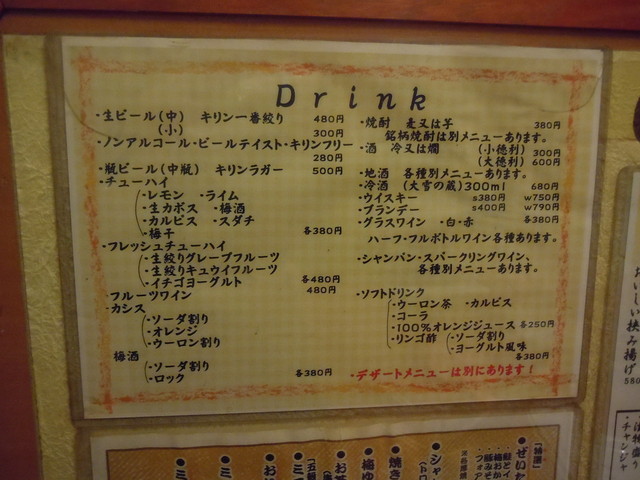 Drink
・生ビール(中) キリン一番絞り 480円
(小) 300円
・ノンアルコール・ビールテイスト・キリンフリー
280円
・瓶ビール(中瓶) キリンラガー 500円
・チューハイ
・レモン ・ライム
・生カボス ・梅酒
・カルピス ・スダチ
・梅干 各380円
・フレッシュチューハイ
・生絞りグレープフルーツ
・生絞りキュウイフルーツ
・イチゴヨーグルト 各480円
・フルーツワイン 480円
・カシス
・ソーダ割り
・オレンジ
・ウーロン割り
梅酒
・ソーダ割り
・ロック 各380円
・焼酎 麦又は芋 380円
銘柄焼酎は別メニューあります。
・酒 冷又は燗 (小徳利) 300円
(大徳利) 600円
・地酒 各種別メニューあります。
・冷酒 (大雪の蔵)300ml 680円
・ウイスキー s380円 w750円
・ブランデー s400円 w790円
・グラスワイン ・白・赤 各380円
ハーフ・フルボトルワイン各種あります。
・シャンパン・スパークリングワイン、
各種別メニューあります。
・ソフトドリンク
・ウーロン茶 ・カルピス
・コーラ
・100%オレンジジュース 各250円
・リンゴ酢 ・ソーダ割り
・ヨーグルト風味
各380円
・デザートメニューは別にあります!
おいしい挟み揚げ
580
・チャンジャ